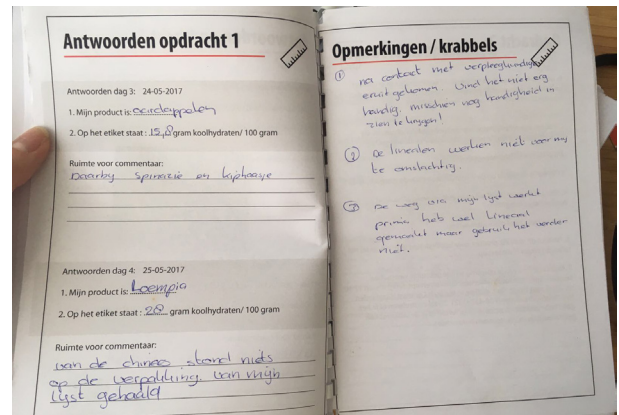 Antwoorden opdracht 1
Antwoorden dag 3: 24-05-2017
1. Mijn product is: aardappelen
2. Op het etiket staat : 15,8 gram koolhydraten/ 100 gram
Ruimte voor commentaar:
Daarby spinazie en kiphaasje
Antwoorden dag 4: 25-05-2017
1. Mijn product is: Loempia
2. Op het etiket staat : 28 gram koolhydraten/ 100 gram
Ruimte voor commentaar:
van de chinees stond niets
op de verpakking. van mijn
lyst gehaald
Opmerkingen / krabbels
① na contact met verpleegkundige
eruit gekomen. Vind het niet erg
handig. misschien nog handigheid in
zien te krijgen!
② De linealen werken niet voor my
te omslachtig.
③ De weg via mijn lyst werkt
prima heb wel lineaal
gemaakt maar gebruik het verder
niet.